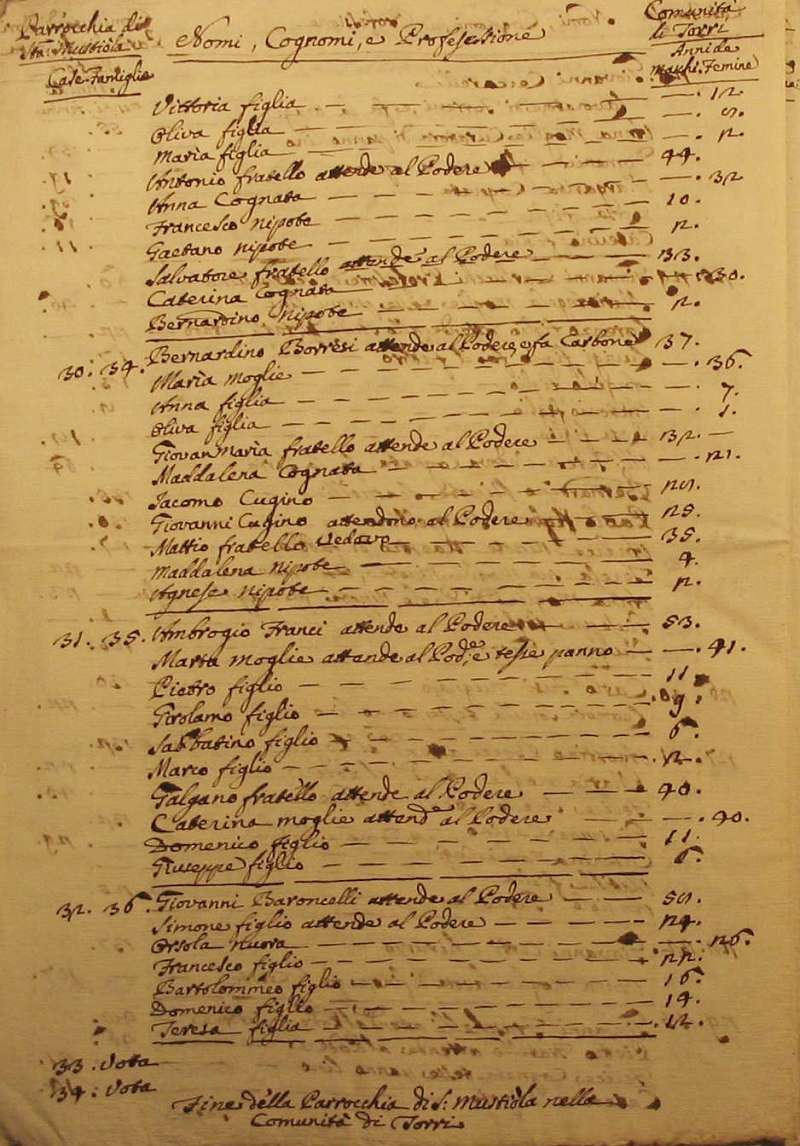 Parrocchia di
Sta: Mustiola
Nomi, Cognomi, e Professione
Comunità
di Torri
Case. Famiglie
Anni de
maschi. Femine
Vittoria figlia — 12
Oliva figlia —
Maria figlia — 2.
Antonio fratello attende al Podere — 44.
Anna Cognata — 32
Francesco nipote — 10.
Gaetano nipote — 2.
Salvatore fratello attende al Podere — 33.
Caterina Cognata — 30.
Bernardino nipote — 2.
30. 34. Bernardino Borresi attende al Podere, e fa Carbone 37.
Maria moglie — 36.
Anna figlia — 7.
Oliva figlia — 1.
GiovanMaria fratello attende al Podere — 32. —
Maddalena Cognata — 21.
Iacomo Cugino —
Giovanni Cugino attendono al Podere — 25.
Mattio fratello Vedovo — 35.
Maddalena nipote — 4.
Agnese nipote — 2.
31. 35. Ambrogio Franci attende al Podere — 53.
Marta moglie attende al Pod.e, e tesse panno — 41.
Pietro figlio — 11
Girolamo figlio — 9.
Sabbatino figlio — 6.
Marco figlio — 2.
Galgano fratello attende al Podere — 40.
Caterina moglie attend.e al Podere — 40.
Domenico figlio — 11.
Giuseppe figlio — 6.
32. 36. Giovanni Baroncelli attende al Podere —
Simone figlio attende al Podere — 24.
Orsola nuora — 26.
Francesco figlio — 22.
Bartolommeo figlio — 16.
Domenico figlio — 14.
Teresa figlia — 12.
33. Vota
34. Vota
Fine della Parrocchia di S: Mustiola nella
Comunità di Torri